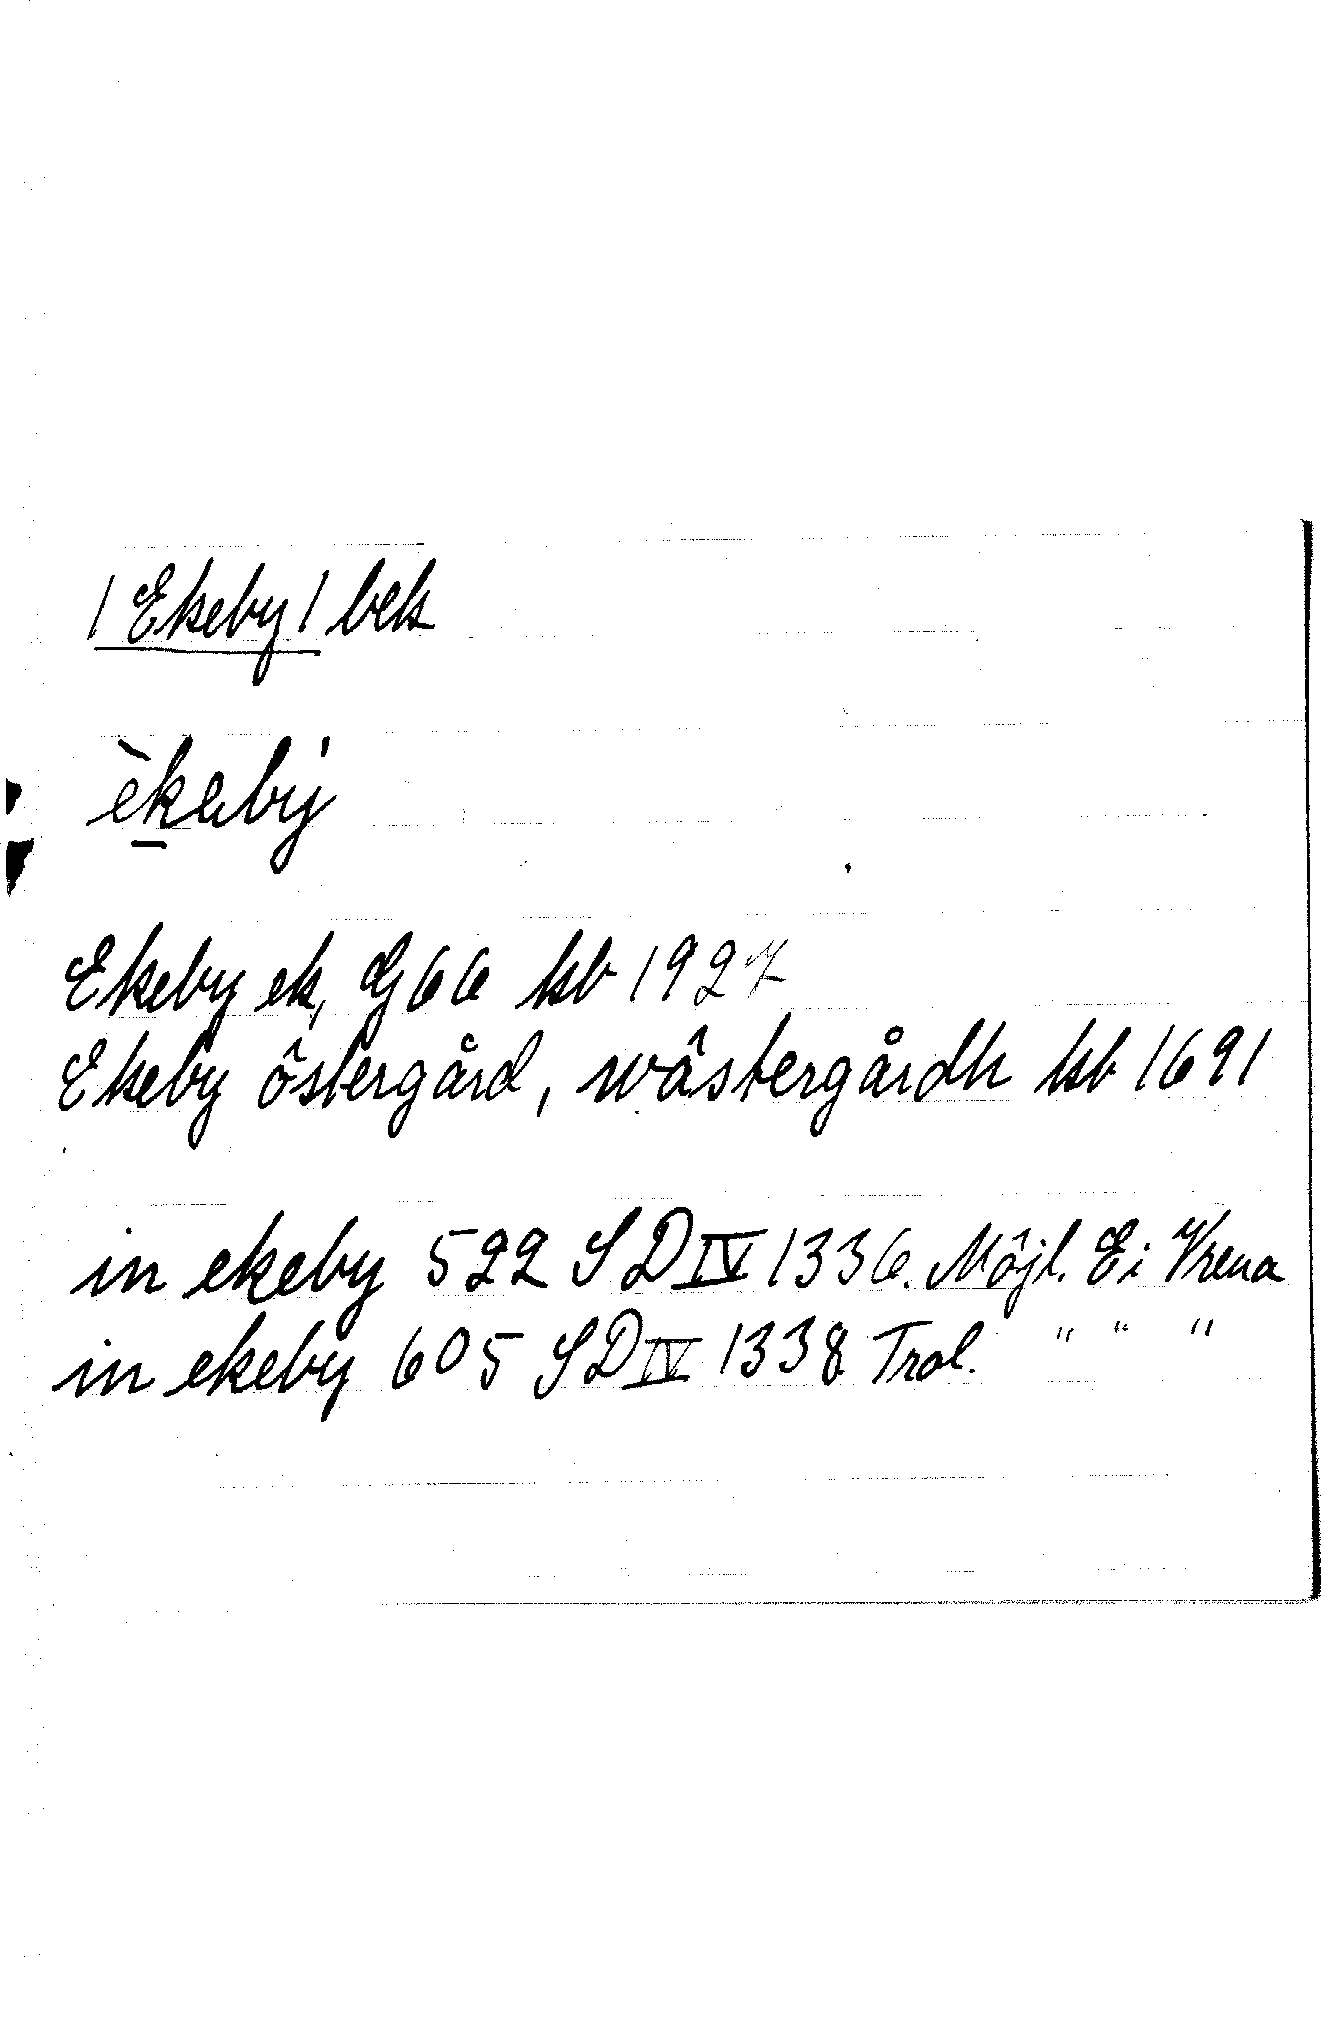 /Ekeby/ bek
èkebẏ
Ekeby ek, G66 kb 1927
Ekeby ôstergård, wâstergårdh kb 1691
in ekeby 522 SD IV 1336. Möjl. E i Vrena
in ekeby 605 SD IV 1338 Trol. " " "